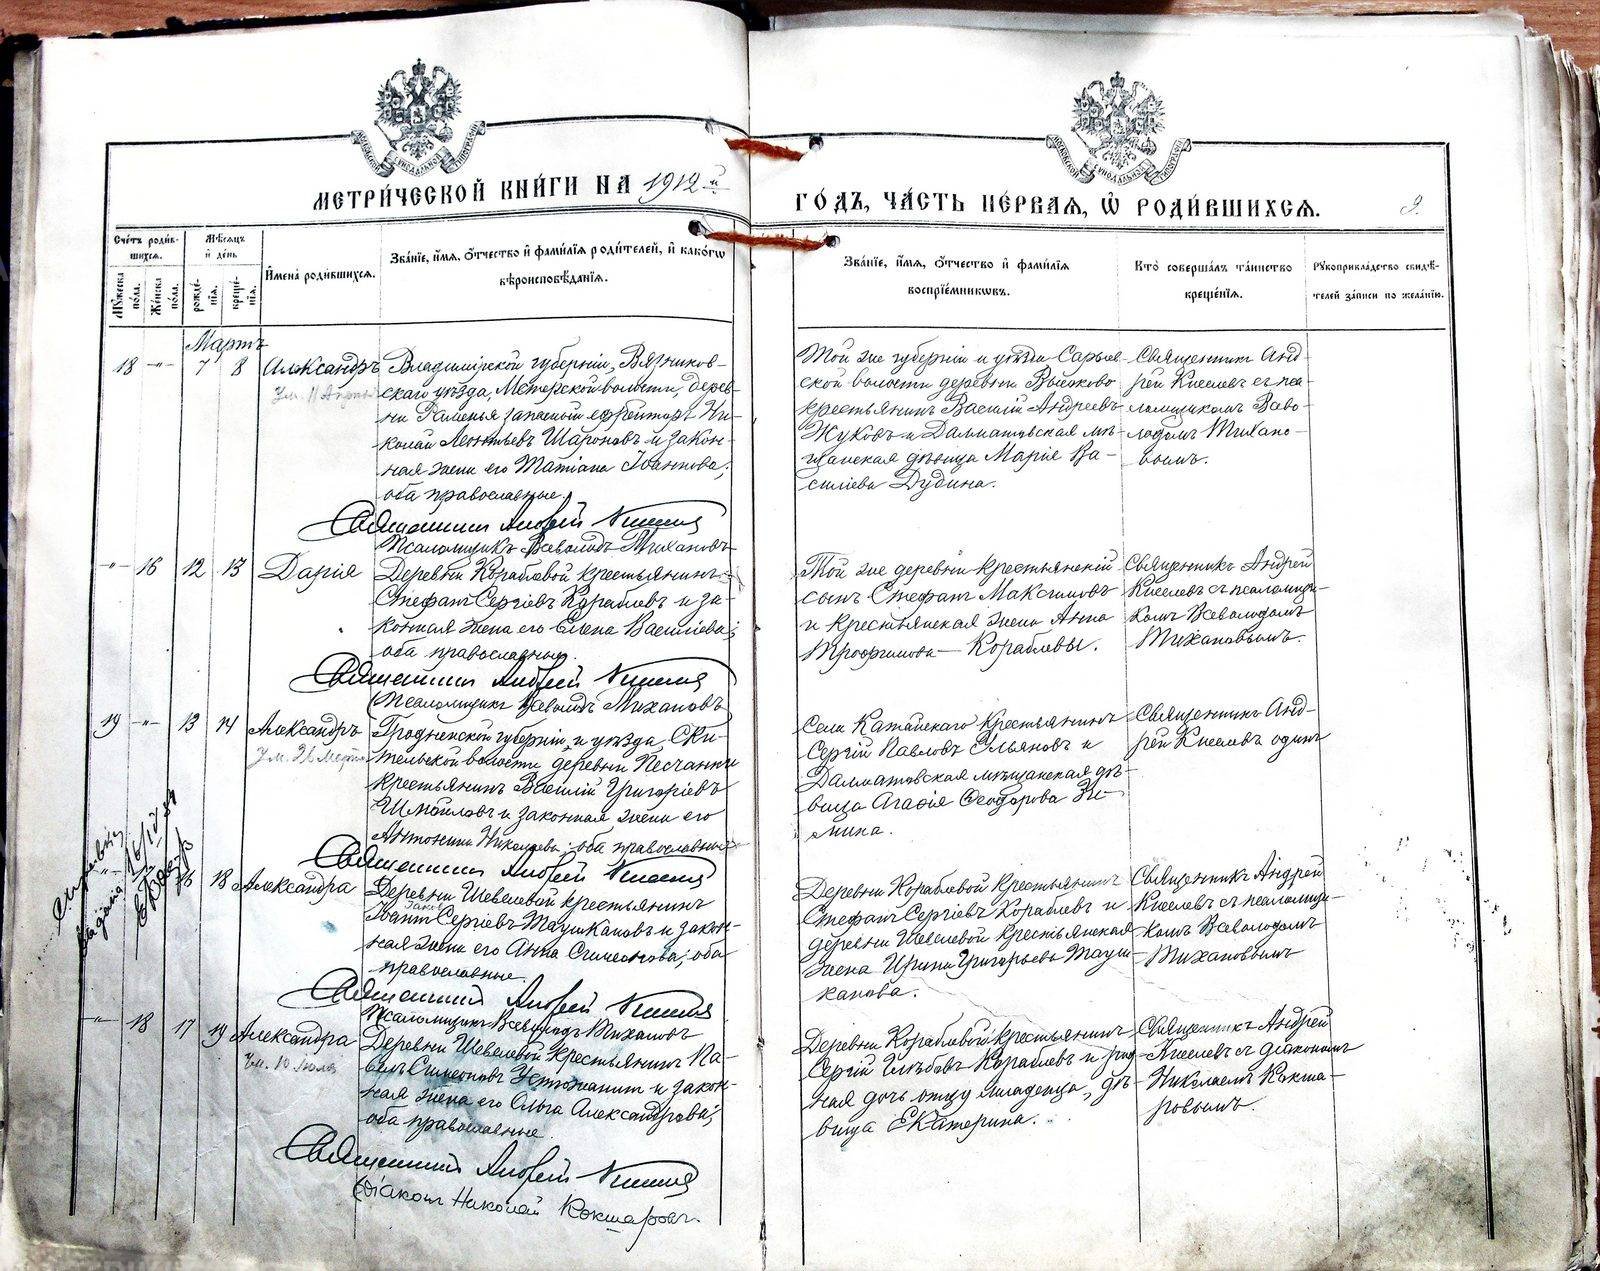 МОСКОВСКОЙ СИНОДАЛЬНОЙ ТИПОГРАФІИ
МОСКОВСКОЙ СИНОДАЛЬНОЙ ТИПОГРАФІИ
МЕТРИ́ЧЕСКОЙ КНИ́ГИ НА 1912 й
ГО́ДЪ, ЧА́СТЬ ПЕ́РВАЯ, Ѽ РОДИ́ВШИХСЯ.
9.
Сче́тъ роди́в-
шихся.
Мꙋ́жеска по́ла.
Же́нска по́ла.
Мѣ́сяцъ и҆ де́нь
рожде́нїя.
креще́нїя.
И҆мена̀ роди́вшихся.
Зва́нїе, и҆́мя, ѻ҆́тчество и҆ фами́лїя роди́телей, и҆ како́гѡ
вѣроисповѣ́данїя.
Зва́нїе, и҆́мя, ѻ҆́тчество и҆ фами́лїя
воспрїе́мникѡвъ.
Кто̀ соверша́лъ та́инство
креще́нїя.
Рꙋкоприкла́дство свидѣ́-
телей за́писи по жела́нїю.
Мартъ
18 -"- 7 8 Александръ
Ум. 11 Апрѣля
Владимірской губерніи, Вязников-
скаго уѣзда, Мстерской волости, дерев-
ни Раменья запасный ефрейторъ Ни-
колай Леонтьевъ Шароновъ и закон-
ная жена его Татіана Іоаннова,
оба православные.
Священникъ Андрей Киселевъ
Псаломщикъ Всеволодъ Тихановъ
Той же губерніи и уѣзда Сарыев-
ской волости деревни Высоково
крестьянинъ Василій Андреевъ
Жуковъ и Далматовская мѣ-
щанская дѣвица Марія Ва-
сильева Дудина.
Священникъ Анд-
рей Киселевъ съ пса-
ломщикомъ Всево-
лодомъ Тихано-
вымъ.
-"- 16 12 13 Дарія
Деревни Кораблевой крестьянинъ
Стефанъ Сергіевъ Кораблевъ и за-
конная жена его Елена Василіева;
оба православные.
Священникъ Андрей Киселевъ
Псаломщикъ Всеволодъ Тихановъ
Той же деревни крестьянскій
сынъ Стефанъ Максимовъ
и крестьянская жена Анна
Трофимова Кораблевы.
Священникъ Андрей
Киселевъ съ псаломщи-
комъ Всеволодомъ
Тихановымъ.
19 -"- 13 14 Александръ
Ум. 26 Марта
Гродненской губерніи и уѣзда, Ски-
тельской волости, деревни Песчанки
крестьянинъ Василій Григоріевъ
Шмойловъ и законная жена его
Антонина Николаева; оба православные
Священникъ Андрей Киселевъ
Села Катайскаго крестьянинъ
Сергій Павловъ Ульяновъ и
Далматовская мѣщанская дѣ-
вица Агафія Ѳеодорова Зи-
мина.
Священникъ Анд-
рей Киселевъ одинъ
16/IV
16 18 Александра
Деревни Шевелевой крестьянинъ
Іоаннъ Сергіевъ Таушкановъ и закон-
ная жена его Анна Симеонова; оба
православные.
Священникъ Андрей Киселевъ
Псаломщикъ Всеволодъ Тихановъ
Деревни Кораблевой крестьянинъ
Стефанъ Сергіевъ Кораблевъ и
деревни Шевелевой крестьянская
жена Ирина Григорьева Тауш-
канова.
Священникъ Андрей
Киселевъ съ псаломщи-
комъ Всеволодомъ
Тихановымъ
-"- 18 17 19 Александра
Ум. 10 Іюля
Деревни Шевелевой крестьянинъ Па-
велъ Симеоновъ Устюжанинъ и закон-
ная жена его Ольга Александрова;
оба православные.
Священникъ Андрей Киселевъ
Діаконъ Николай Кокшаровъ
Деревни Кораблевой крестьянинъ
Сергій Глѣбовъ Кораблевъ и род-
ная дочь отцу младенца, дѣ-
вица Екатерина.
Священникъ Андрей
Киселевъ съ діакономъ
Николаемъ Кокша-
ровымъ.